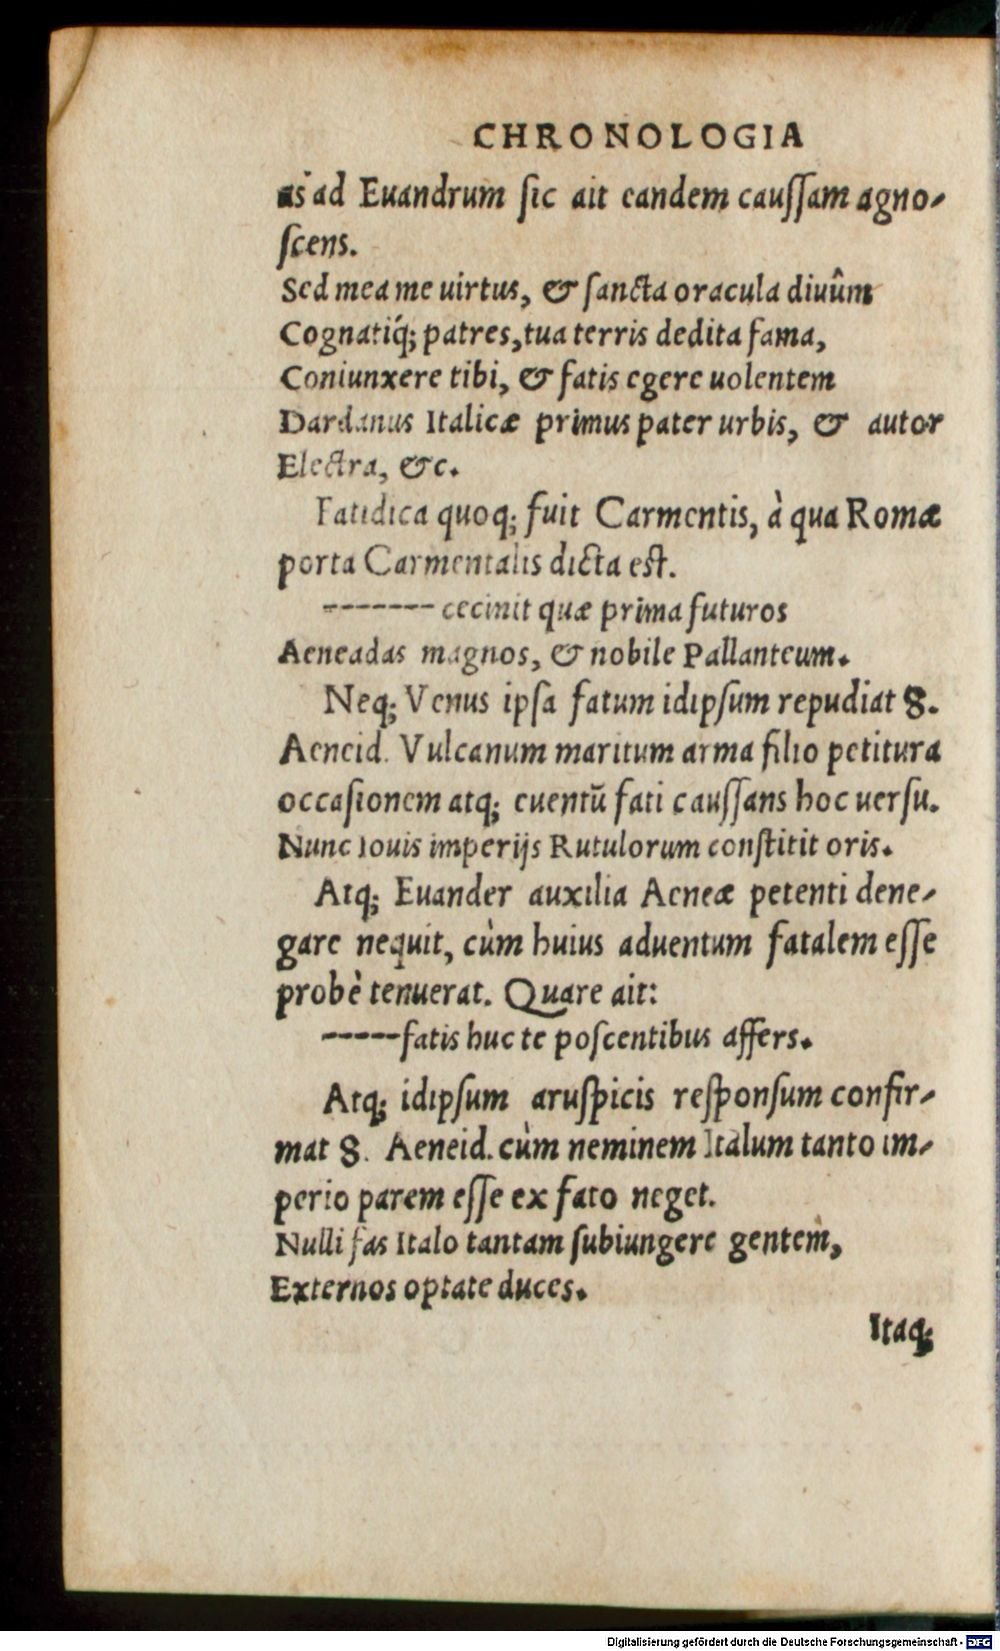 CHRONOLOGIA
as ad Euandrum ſic ait eandem cauſſam agno-
ſcens.
Sed mea me uirtus, & ſancta oracula diuûm
Cognatiq́; patres, tua terris dedita fama,
Coniunxere tibi, & fatis egere uolentem
Dardanus Italicæ primus pater urbis, & autor
Electra, &c.
Fatidica quoq; fuit Carmentis, à qua Romæ
porta Carmentalis dicta eſt.
------- cecinit quæ prima futuros
Aeneadas magnos, & nobile Pallanteum.
Neq; Venus ipſa fatum idipſum repudiat 8.
Aeneid. Vulcanum maritum arma filio petitura
occaſionem atq; euentū fati cauſſans hoc uerſu.
Nunc Iouis imperijs Rutulorum conſtitit oris.
Atq; Euander auxilia Aeneæ petenti dene-
gare nequit, cùm huius aduentum fatalem eſſe
probè tenuerat. Quare ait:
-----fatis huc te poſcentibus affers.
Atq; idipſum aruſpicis reſponſum confir-
mat 8. Aeneid. cùm neminem Italum tanto im-
perio parem eſſe ex fato neget.
Nulli fas Italo tantam ſubiungere gentem,
Externos optate duces.
Itaq;
Digitalisierung gefördert durch die Deutsche Forschungsgemeinschaft - DFG